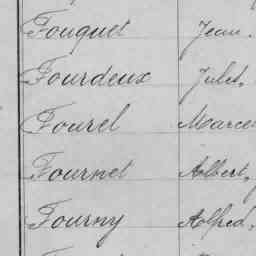 Fouquet Jean.
Fourdeux Jules,
Fourel Marce
Fournet Albert,
Fourny Alfred,